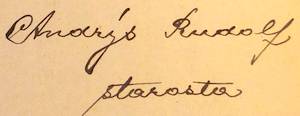 Andrýs Rudolf
starosta